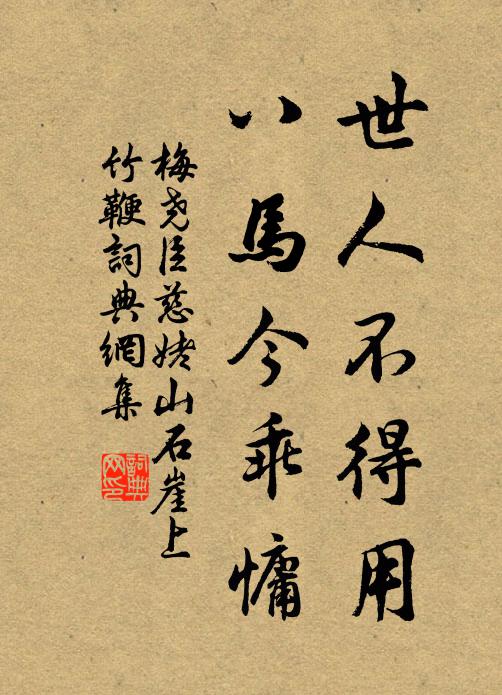 世人不得用
八馬今乖慵
梅尧臣慈姥山石崖上
竹鞭詞典網集
詞典
网印